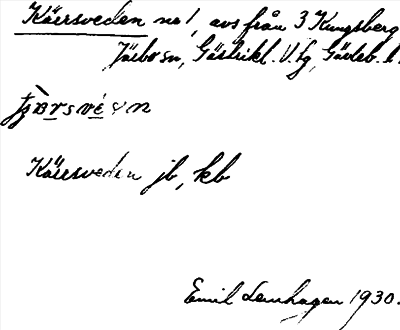 Käersveden no 1, avs från 3 Kungsberg
Järbo sn, Gästrikl. V. tg, Gävleb. l.
Käersveden jb, kb
Emil Lenhagen 1930.